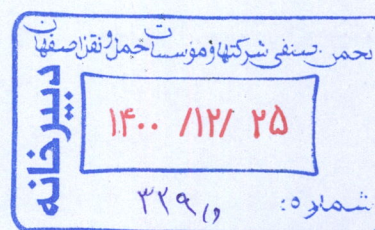 انجمن صنفی شرکتها و مؤسسات حمل و نقل اصفهان
دبیرخانه
۱۴۰۰ /۱۲/ ۲۵
شماره: و/۳۲۹